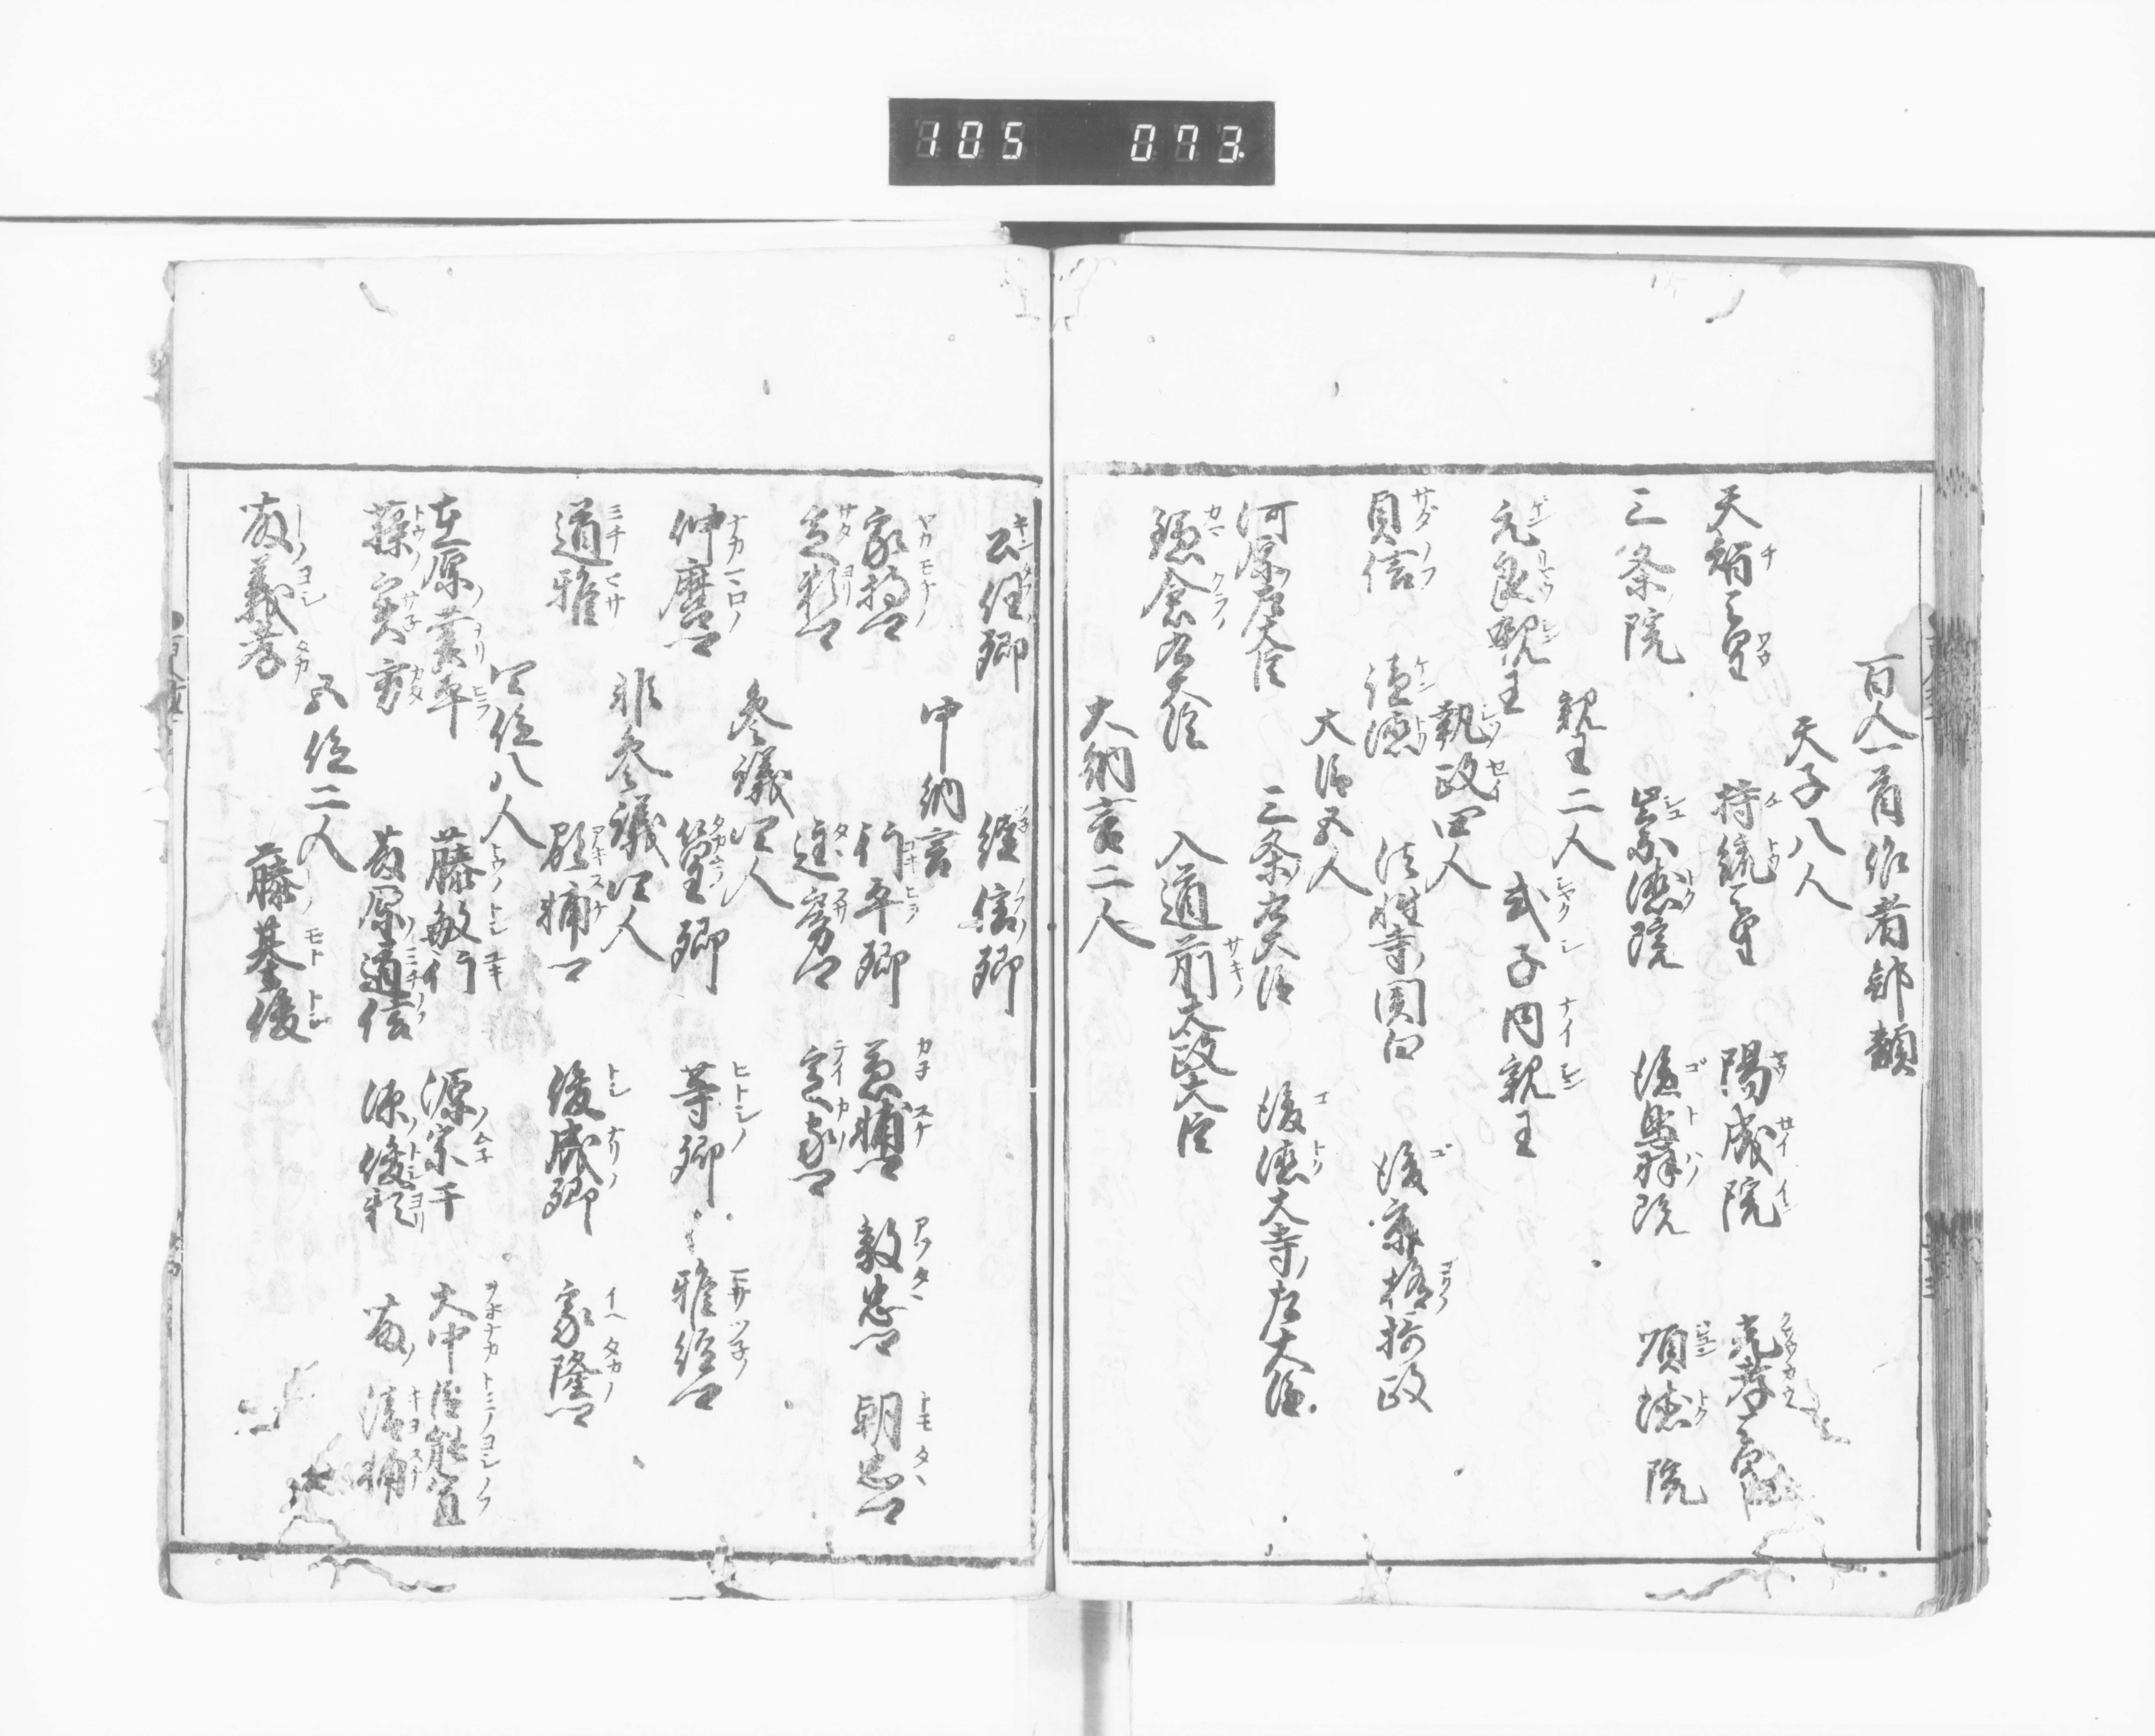 105 073
百人一首作者部類
天子八人
天智天皇 持統天皇 陽成院 光孝天皇
三条院 崇徳院 後鳥羽院 順徳院
親王二人
元良親王 式子内親王
執政四人
貞信 謙徳 法性寺関白 後京極摂政
大臣五人
河原左大臣 三条右大臣 後徳大寺左大臣
鎌倉右大臣 入道前太政大臣
大納言二人
公任卿 経信卿
中納言
家持卿 行平卿 兼輔卿 敦忠卿 朝忠卿
定頼卿 匡房卿 定家卿
参議四人
仲麿卿 篁卿 等卿 雅経卿
非参議四人
道雅 顕輔卿 俊成卿 家隆卿
四位八人
在原業平 藤敏行 源宗于 大中臣能宣
藤実方 藤原道信 源俊頼 藤清輔
五位二人
藤義孝 藤基俊